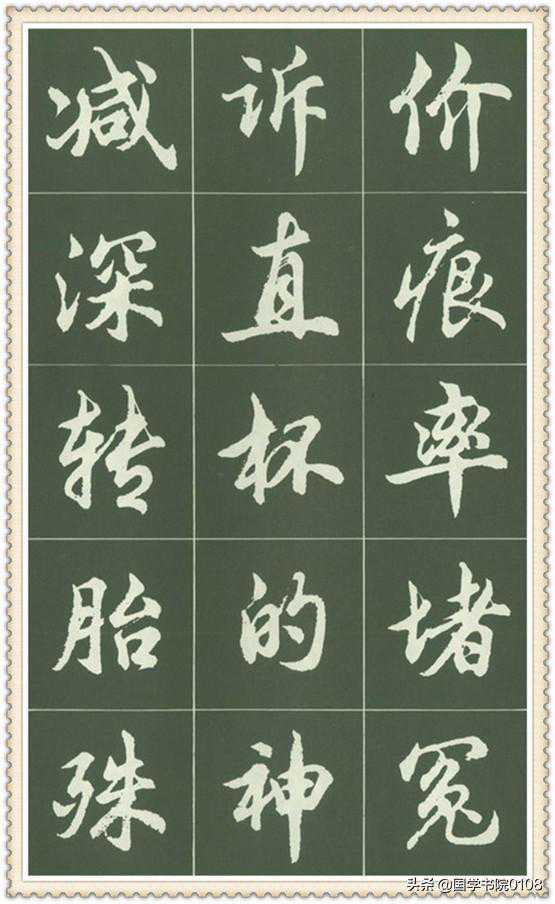 价痕率堵冤
诉直杯的神
减深转胎殊
头条@国学书院0108